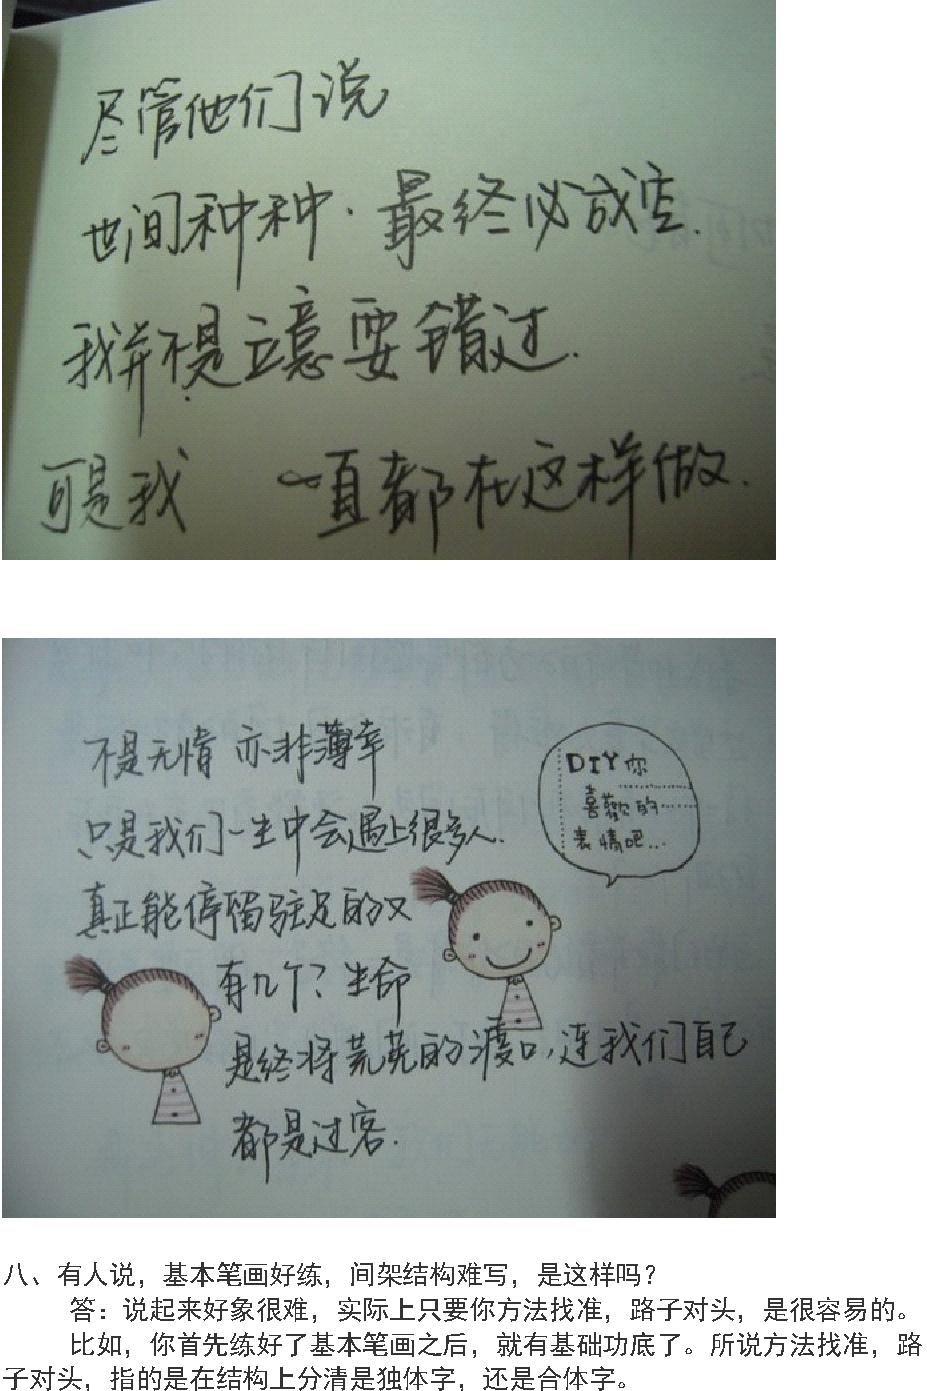 尽管他们说
世间种种.最终必成空.
我并不是立意要错过.
可是我 一直都在这样做.
不是无情 亦非薄幸
只是我们一生中会遇上很多人.
真正能停留驻足的又
有几个?生命
是终将荒芜的渡口,连我们自己
都是过客.
DIY你
喜歡的
表情吧...
八、有人说，基本笔画好练，间架结构难写，是这样吗？
答：说起来好象很难，实际上只要你方法找准，路子对头，是很容易的。
比如，你首先练好了基本笔画之后，就有基础功底了。所说方法找准，路
子对头，指的是在结构上分清是独体字，还是合体字。